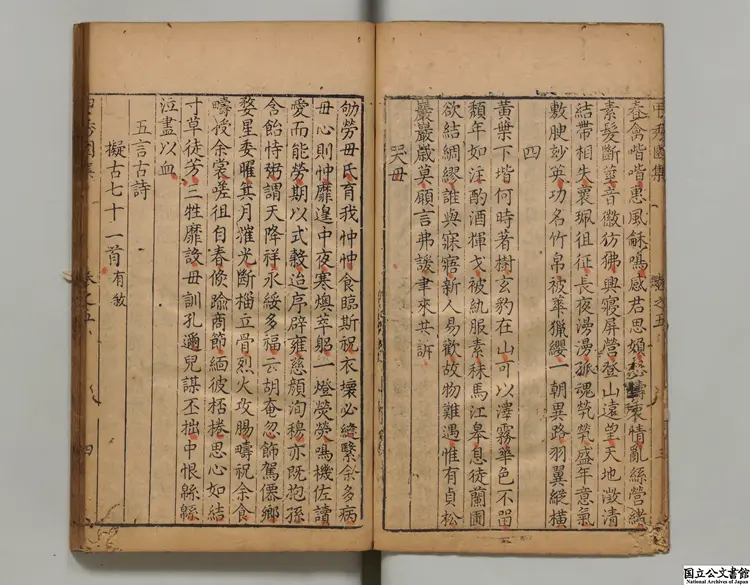 甲秀園集 卷之五 三
禽喈喈惠風龢鳴感君思情亂絲營緒
素髮斷蓬音徽彷彿興寢屏營登山遠望天地澂清
結帶相失褰珮徂征長夜湯湯孤魂煢煢盛年意氣
敷腴妙英功名竹帛被華獵纓一朝異路羽翼縱橫
四
黃葉下堦何時著樹玄豹在山可以澤霧華色不畱
頹年如注酌酒揮戈被紈服素秣馬江皋息徒蘭圃
欲結綢繆誰與寐寤新人易歡故物難遇惟有貞松
嚴嚴歲莫願言弗諼聿來共訴
哭母
劬勞母氏育我忡忡食臨斯祝衣壞必縫繄余多病
母心則忡靡遑中夜寒燠萃躬一燈熒熒鳴機佐讀
愛而能勞期以式穀迨序辟雍慈顏洵穆亦既抱孫
含飴恃粥謂天降祥永綏多福云胡奄忽飾駕僊鄉
婺星委曜箕月摧光斷立骨烈火攻腸疇祝余食
疇授余裳嗟徂自春倏踰商節緬彼桮棬思心如結
寸草徒芳三牲靡設母訓孔邇兒謀丕拙中恨緜緜
泣盡以血
五言古詩
擬古七十一首有敘
甲秀園集 卷之五 四
国立公文書館
National Archives of Japan